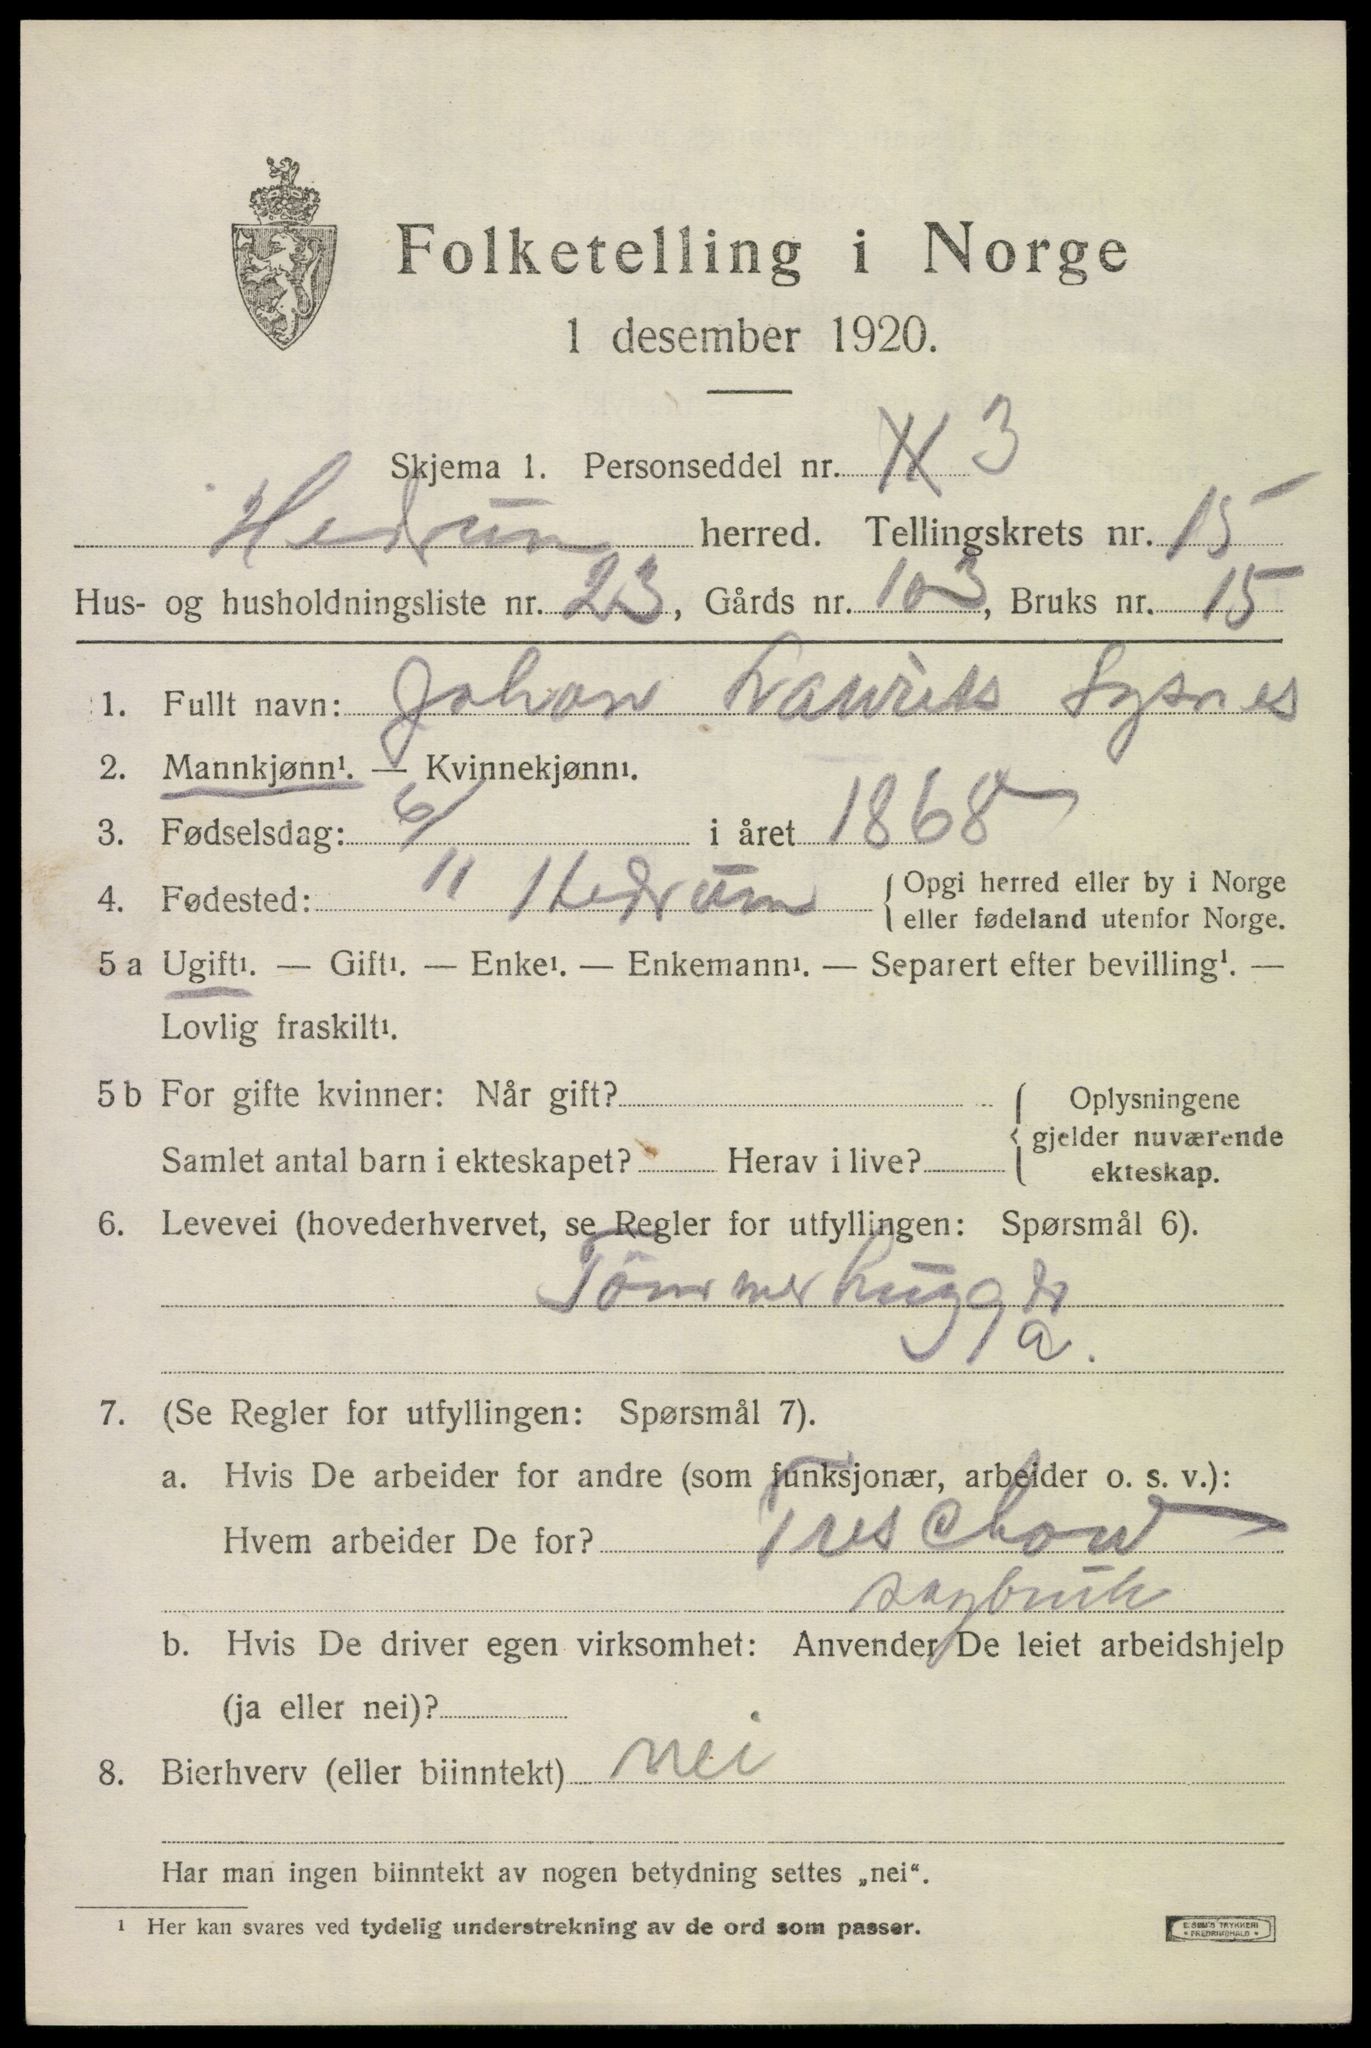 Folketelling i Norge
1 desember 1920.
Skjema 1. Personseddel nr. 3
Hedrum herred. Tellingskrets nr. 15
Hus- og husholdningsliste nr. 23, Gårds nr. 103, Bruks nr. 15
1. Fullt navn: Johan Laurits Sysnes
2. Mannkjønn¹. — Kvinnekjønn¹.
3. Fødselsdag: 6/11 i året 1868
4. Fødested: Hedrum { Opgi herred eller by i Norge
eller fødeland utenfor Norge.
5 a Ugift¹. — Gift¹. — Enke¹. — Enkemann¹. — Separert efter bevilling¹. —
Lovlig fraskilt¹.
5 b For gifte kvinner: Når gift? { Oplysningene
gjelder nuværende
Samlet antal barn i ekteskapet? Herav i live? ekteskap.
6. Levevei (hovederhvervet, se Regler for utfyllingen: Spørsmål 6).
Tömmerhugger
a.
7. (Se Regler for utfyllingen: Spørsmål 7).
a. Hvis De arbeider for andre (som funksjonær, arbeider o. s. v.):
Hvem arbeider De for? Treschow
sagbruk
b. Hvis De driver egen virksomhet: Anvender De leiet arbeidshjelp
(ja eller nei)?
8. Bierhverv (eller biinntekt) nei
Har man ingen biinntekt av nogen betydning settes „nei“.
¹ Her kan svares ved tydelig understrekning av de ord som passer.
E. SEM'S TRYKKERI
* FREDRIKSHALD *